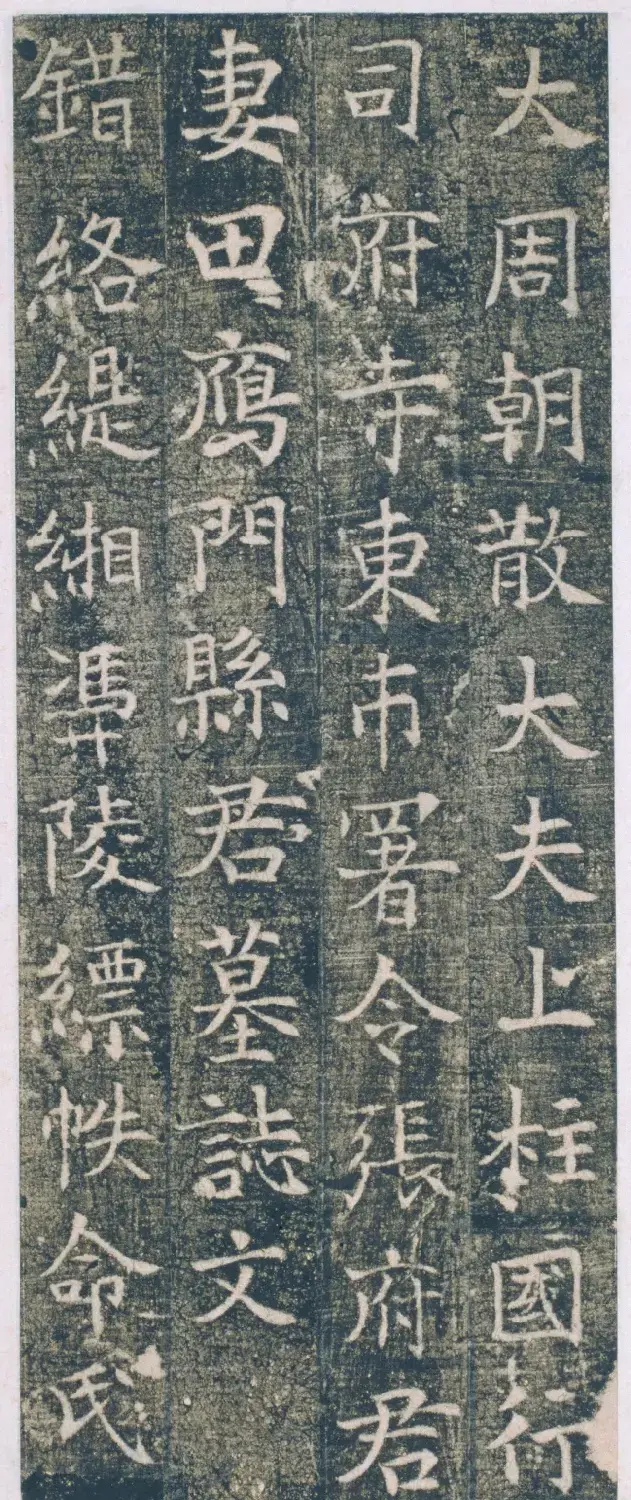 大周朝散大夫上柱國行
司府寺東市署令張府君
妻田鴈門縣君墓誌文
錯絡緹緗憑陵縹帙命氏